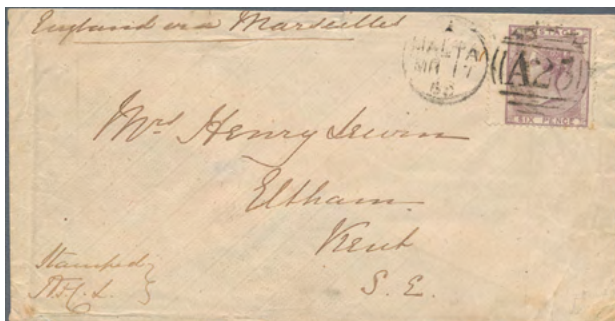 England via Marseilles
MALTA
MR 17
60
A25
POSTAGE
SIX PENCE
Mrs Henry Lewin
Eltham
Kent
S. E.
Stamped